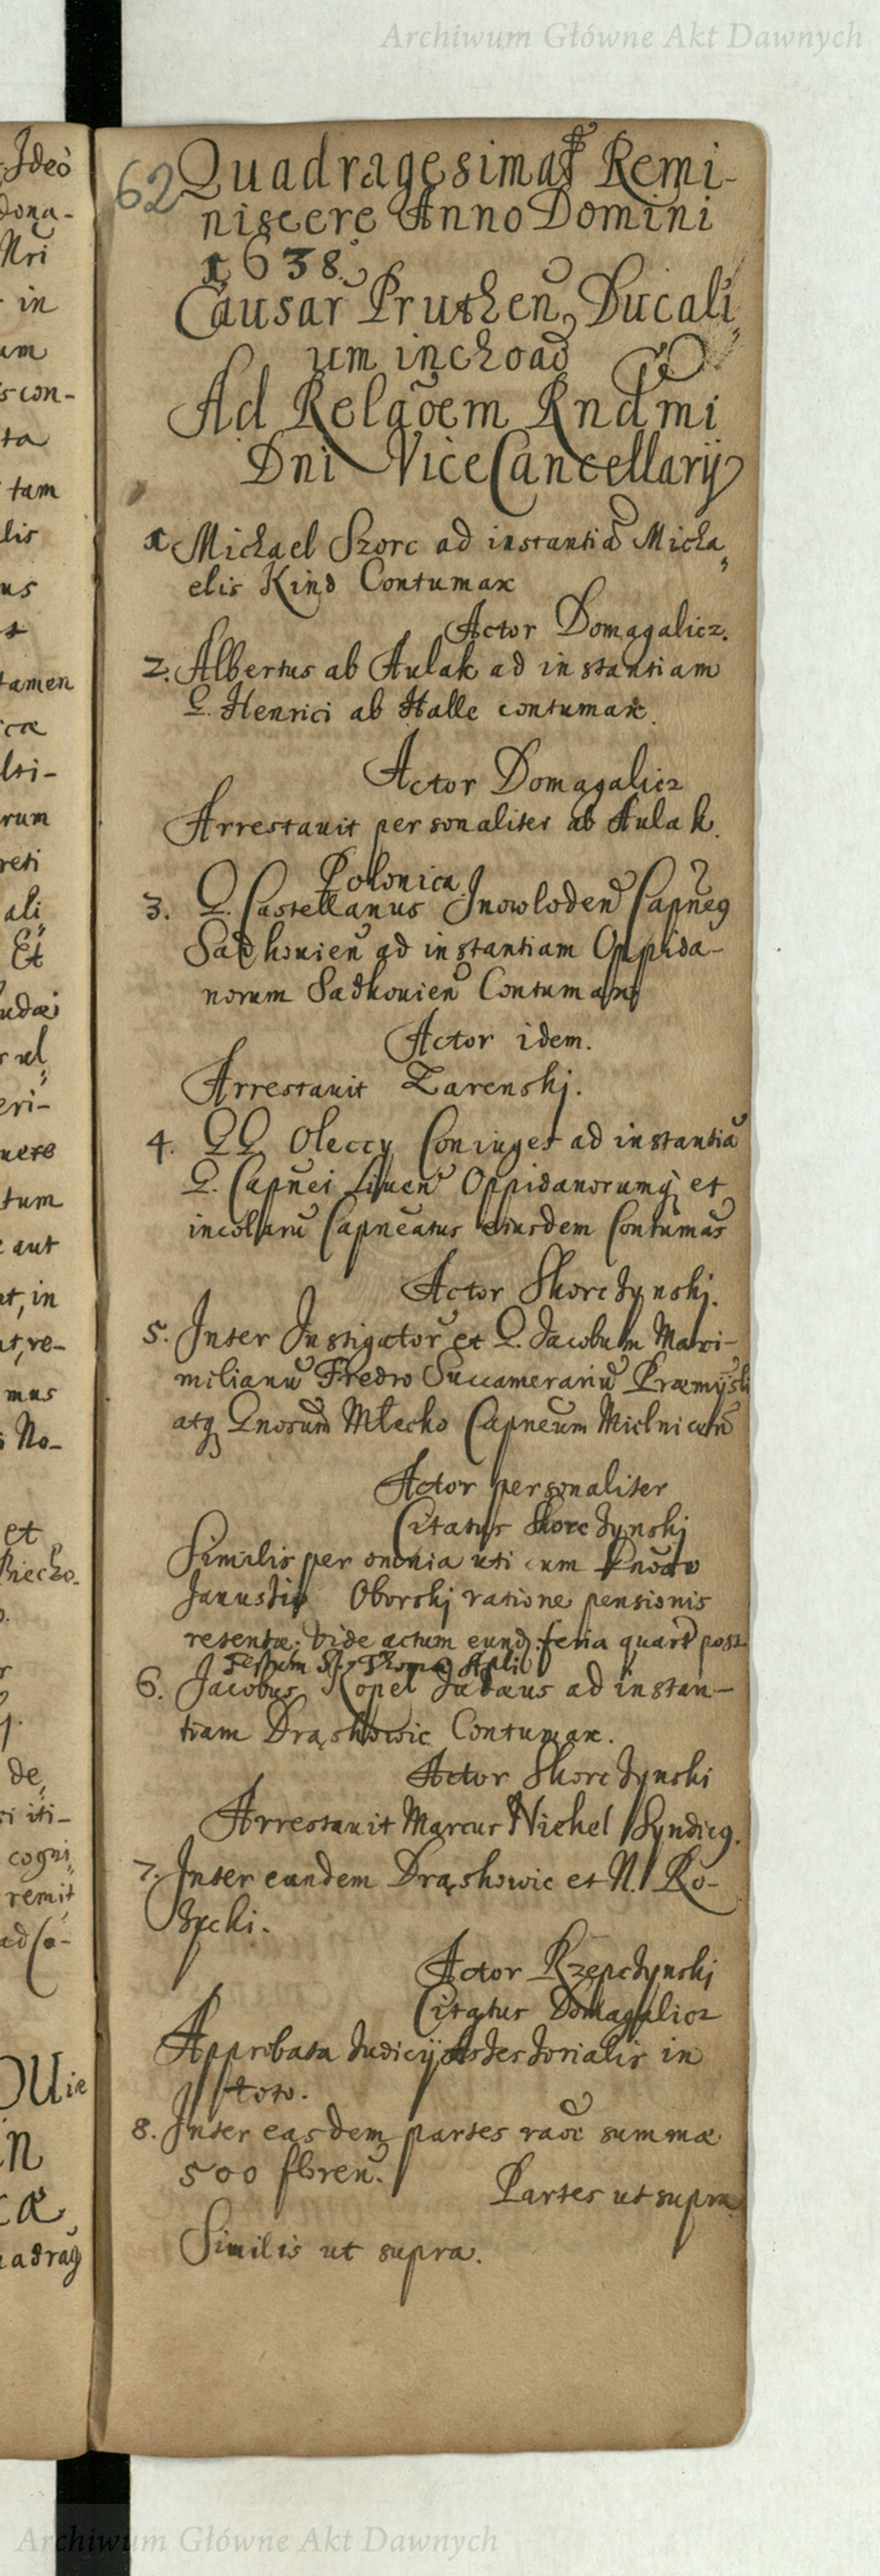 Archiwum Główne Akt Dawnych
62
Quadragesimal Remi-
niscere Anno Domini
1638.
Causar Pruthen Ducali
um inchoad
Ad Relãoem Rndmi
Dni ViceCancellarij
1 Michael Szorc ad instantiã Micha
elis Kind Contumax
Actor Domagalicz.
2. Albertus ab Aulak ad instantiam
G. Henrici ab Halle contumax.
Actor Domagalicz
Arrestauit personaliter ab Aulak.
Polonica
3. G. Castellanus Inowloden Capneq
Sadkouien ad instantiam Oppida-
norum Sadkouien Contumax
Actor idem.
Arrestauit Zarenski.
4. GG Oleccy Coniuges ad instantiã
G. Capnei Liuen Oppidanorumq et
incolarũ Capneatus eiusdem Contumas
Actor Skorczynski.
5. Inter Instigator et G. Jacobum Maxi-
milianũ Fredro Succamerariũ Præmysl
atq Gnosum Młecko Capneum Mielnicen
Actor personaliter
Citatus Skorczynski
Similis per omnia uti cum
Oborskj ratione pensionis
retentæ. Vide actum eund feria quart post
Festum S. Thomæ Apli
6. Jacobus Kopel Judæus ad instan-
tiam Drąskowic Contumax.
Actor Skorczynski
Arrestauit Marcus Nickel Syndicq.
7. Inter eundem Drąskowic et N. Ro-
życki.
Actor Rzepczynski
Citatus Domagalicz
Approbata Judicij Assessorialis in
toto.
8. Inter easdem partes raõe summæ
500 floren.
Partes ut supra
Similis ut supra.
Archiwum Główne Akt Dawnych